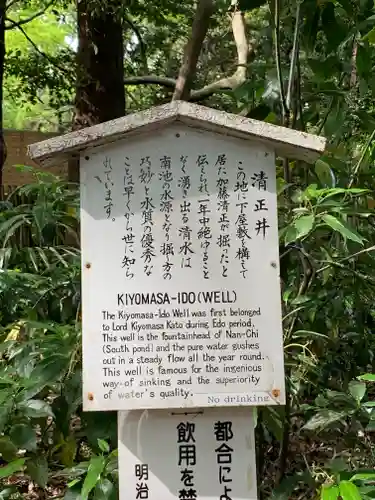 清正井
この地に下屋敷を構えて
居た加藤清正が掘ったと
伝えられ、一年中絶ゆること
なく湧き出る清水は
南池の水源となり掘り方の
巧妙と水質の優秀な
ことは早くから世に知ら
れています。
KIYOMASA-IDO (WELL)
The Kiyomasa-Ido Well was first belonged
to Lord Kiyomasa Kato during Edo period.
This well is the fountainhead of Nan-Chi
(South pond) and the pure water gushes
out in a steady flow all the year round.
This well is famous for the ingenious
way of sinking and the superiority
of water's quality.
No drinking
都合によ
飲用を禁
明治